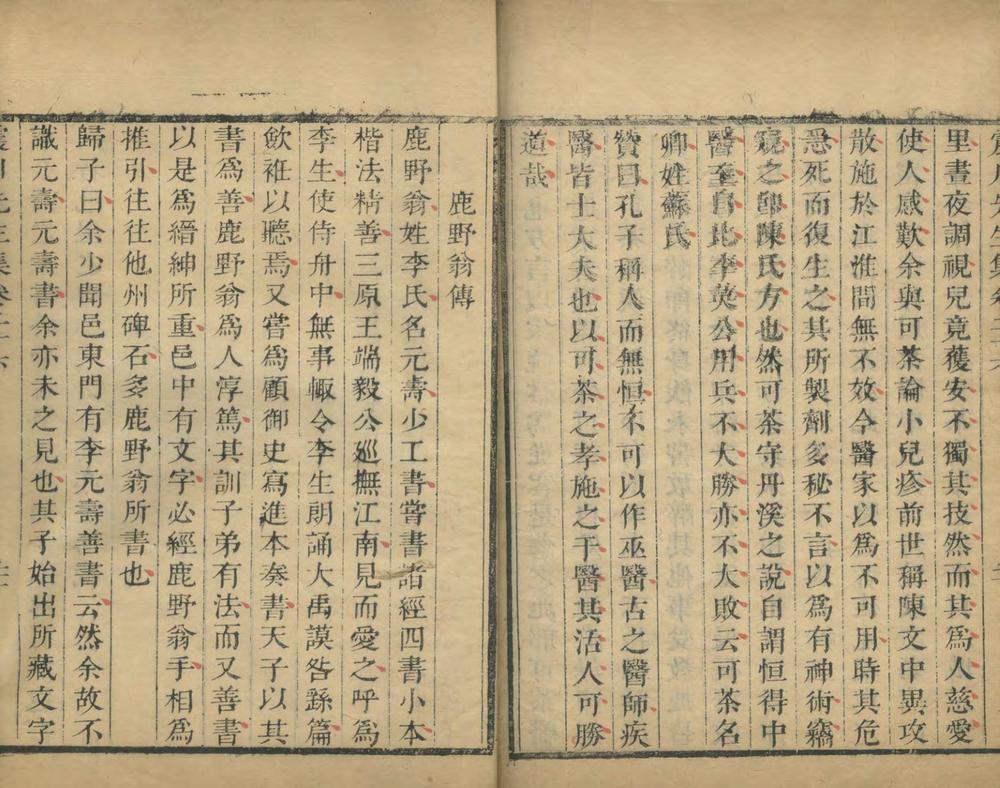 里晝夜調視兒竟獲安不獨其技然而其為人慈愛
使人感歎余與可茶論小兒疹前世稱陳文中異攻
散施於江淮間無不效今醫家以為不可用時其危
惡死而復生之其所製劑多秘不言以為有神術竊
窺之即陳氏方也然可茶守丹溪之說自謂恒得中
醫至自比李英公用兵不大勝亦不大敗云可茶名
卿姓蘇氏
贊曰孔子稱人而無恒不可以作巫醫古之醫師疾
醫皆士大夫也以可茶之孝施之于醫其活人可勝
道哉
鹿野翁傳
鹿野翁姓李氏名元壽少工書嘗書諸經四書小本
楷法精善三原王端毅公廵撫江南見而愛之呼為
李生使侍舟中無事輙令李生朗誦大禹謨咎繇篇
歛袵以聽焉又嘗為顧御史寫進本奏書天子以其
書為善鹿野翁為人淳篤其訓子弟有法而又善書
以是為縉紳所重邑中有文字必經鹿野翁手相為
推引往往他州碑石多鹿野翁所書也
歸子曰余少聞邑東門有李元壽善書云然余故不
識元壽元壽書余亦未之見也其子始出所藏文字